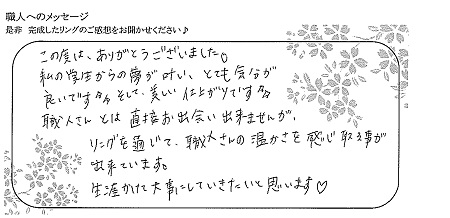 職人へのメッセージ
是非 完成したリングのご感想をお聞かせください♪
この度は、ありがとうございました。
私の学生からの夢が叶い、とても気分が
良いです そして、美しい仕上がりです
職人さんとは直接お出会い出来ませんが、
リングを通じて、職人さんの温かさを感じ取る事が
出来ています。
生涯かけて大事にしていきたいと思います♡